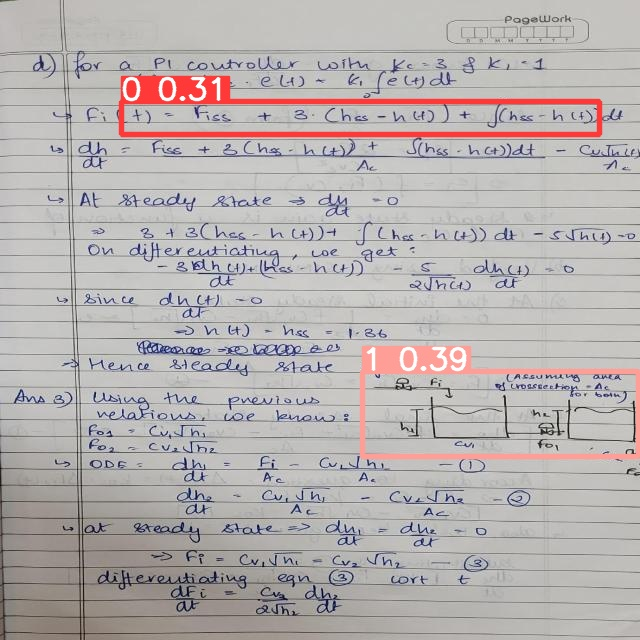 PageWork
D D M M Y Y Y Y
d) for a PI controller with Kc = 3 & K1 = 1
0 0.31
. e(t) ~ K1 ∫ e(t) dt
↳ Fi(t) = Fiss + 3. (hss - h(t)) + ∫(hss - h(t)) dt
↳ dh/dt = Fiss + 3(hss - h(t)) + ∫(hss - h(t))dt / Ac - Cv√h(t) / Ac
↳ At steady state ⇒ dh/dt = 0
⇒ 3 + 3(hss - h(t)) + ∫(hss - h(t)) dt - 5√h(t) = 0
On differentiating, we get:
- 3 dh(t)/dt + (hss - h(t)) - 5/2√h(t) dh(t)/dt = 0
↳ since dh(t)/dt = 0
⇒ h(t) = hss = 1.36
⇒ Hence steady state
1 0.39
Fi
(Assuming area of crosssection = Ac for both)
h1
h2
Cv1
Fo1
Ans 3) Using the previous
relations, we know:
Fo1 = Cv1√h1
Fo2 = Cv2√h2
↳ ODE = dh1/dt = Fi/Ac - Cv1√h1/Ac — ①
dh2/dt = Cv1√h1/Ac - Cv2√h2/Ac — ②
↳ at steady state ⇒ dh1/dt = dh2/dt = 0
⇒ Fi = Cv1√h1 = Cv2√h2 — ③
differentiating eqn ③ wrt t
dFi/dt = Cv2/2√h2 dh2/dt